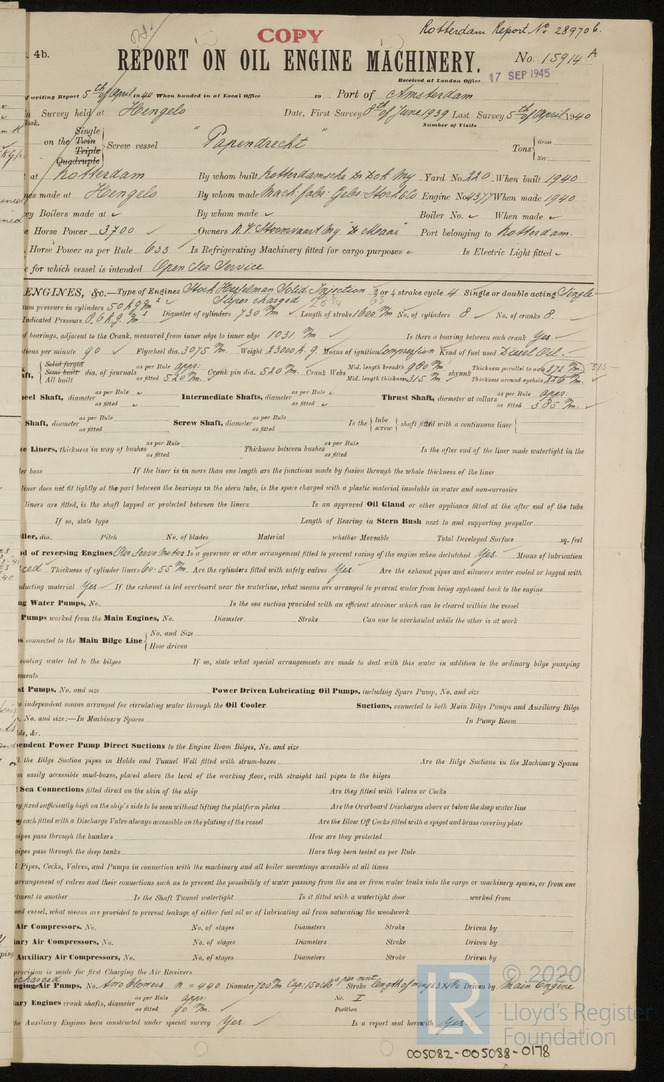 Rotterdam Report No. 28970 b.
COPY
4b.
REPORT ON OIL ENGINE MACHINERY.
No. 15914 A
Received at London Office
17 SEP 1945
writing Report 5th of April 1940 When handed in at Local Office to Port of Amsterdam
Survey held at Hengelo Date, First Survey 8th of June 1939 Last Survey 5th of April 1940
Number of Visits
on the Single Twin Triple Quadruple Screw vessel "Papendrecht" Tons Gross Net
at Rotterdam By whom built Rotterdamsche Dr. Dok My Yard No. 220 When built 1940
nes made at Hengelo By whom made Mach. fabr. Gebr. Stork & Co Engine No. 4377 When made 1940
y Boilers made at By whom made Boiler No. When made
e Horse Power 3700 Owners N.V. Stoomvaart My "de Maas" Port belonging to Rotterdam.
Horse Power as per Rule 633 Is Refrigerating Machinery fitted for cargo purposes Is Electric Light fitted
for which vessel is intended Open Sea Service
ENGINES, &c.—Type of Engines Stork Hesselman Solid Injection 2 or 4 stroke cycle 4 Single or double acting Single
Super charged
um pressure in cylinders 50 kg/cm² Diameter of cylinders 730 m/m Length of stroke No. of cylinders 8 No. of cranks 8.
Indicated Pressure
of bearings, adjacent to the Crank, measured from inner edge to inner edge 1031 m/m Is there a bearing between each crank Yes
tions per minute 90 Flywheel dia. 3075 m/m Weight Means of ignition Compression Kind of fuel used Diesel Oil.
Solid forged Semi built All built dia. of journals as per Rule appr: as fitted 520 m/m Crank pin dia. 520 m/m Crank Webs Mid. length breadth 960 m/m Mid. length thickness 315 m/m shrunk Thickness parallel to axis Thickness around eyehole
eel Shaft, diameter as per Rule as fitted Intermediate Shafts, diameter as per Rule as fitted Thrust Shaft, diameter at collars as per Rule appr: as fitted 385 m/m
Shaft, diameter as per Rule as fitted Screw Shaft, diameter as per Rule as fitted Is the tube screw shaft fitted with a continuous liner
e Liners, thickness in way of bushes as per Rule as fitted Thickness between bushes as per Rule as fitted Is the after end of the liner made watertight in the
ler boss If the liner is in more than one length are the junctions made by fusion through the whole thickness of the liner
liner does not fit tightly at the part between the bearings in the stern tube, is the space charged with a plastic material insoluble in water and non-corrosive
liners are fitted, is the shaft lapped or protected between the liners Is an approved Oil Gland or other appliance fitted at the after end of the tube
If so, state type Length of Bearing in Stern Bush next to and supporting propeller
ller, dia. Pitch No. of blades Material whether Moveable Total Developed Surface sq. feet
od of reversing Engines Is a governor or other arrangement fitted to prevent racing of the engine when declutched Yes. Means of lubrication
ced Thickness of cylinder liners 60-55 m/m Are the cylinders fitted with safety valves Yes Are the exhaust pipes and silencers water cooled or lagged with
ducting material Yes If the exhaust is led overboard near the waterline, what means are arranged to prevent water from being syphoned back to the engine
ng Water Pumps, No. Is the sea suction provided with an efficient strainer which can be cleared within the vessel
Pumps worked from the Main Engines, No. Diameter Stroke Can one be overhauled while the other is at work
connected to the Main Bilge Line No. and Size How driven
cooling water led to the bilges If so, state what special arrangements are made to deal with this water in addition to the ordinary bilge pumping
ements
st Pumps, No. and size Power Driven Lubricating Oil Pumps, including Spare Pump, No. and size
o independent means arranged for circulating water through the Oil Cooler Suctions, connected to both Main Bilge Pumps and Auxiliary Bilge
, No. and size:—In Machinery Spaces In Pump Room
lds, &c.
endent Power Pump Direct Suctions to the Engine Room Bilges, No. and size
l the Bilge Suction pipes in Holds and Tunnel Well fitted with strum-boxes Are the Bilge Suctions in the Machinery Spaces
m easily accessible mud-boxes, placed above the level of the working floor, with straight tail pipes to the bilges
Sea Connections fitted direct on the skin of the ship Are they fitted with Valves or Cocks
y fixed sufficiently high on the ship's side to be seen without lifting the platform plates Are the Overboard Discharges above or below the deep water line
y each fitted with a Discharge Valve always accessible on the plating of the vessel Are the Blow Off Cocks fitted with a spigot and brass covering plate
ipes pass through the bunkers How are they protected
ipes pass through the deep tanks Have they been tested as per Rule
l Pipes, Cocks, Valves, and Pumps in connection with the machinery and all boiler mountings accessible at all times
arrangement of valves and their connections such as to prevent the possibility of water passing from the sea or from water tanks into the cargo or machinery spaces, or from one
tment to another Is the Shaft Tunnel watertight Is it fitted with a watertight door worked from
od vessel, what means are provided to prevent leakage of either fuel oil or of lubricating oil from saturating the woodwork
Air Compressors, No. No. of stages Diameters Stroke Driven by
iary Air Compressors, No. No. of stages Diameters Stroke Driven by
Auxiliary Air Compressors, No. No. of stages Diameters Stroke Driven by
provision is made for first Charging the Air Receivers
nging Air Pumps, No. Two blowers n = 440 Diameter 700 m/m Stroke Driven by Main Engine
iary Engines crank shafts, diameter as per Rule appr: as fitted 90 m/m No. I Position
he Auxiliary Engines been constructed under special survey Yes. Is a report sent herewith Yes.
© 2020
LR
Lloyd's Register
Foundation
005082-005088-0178